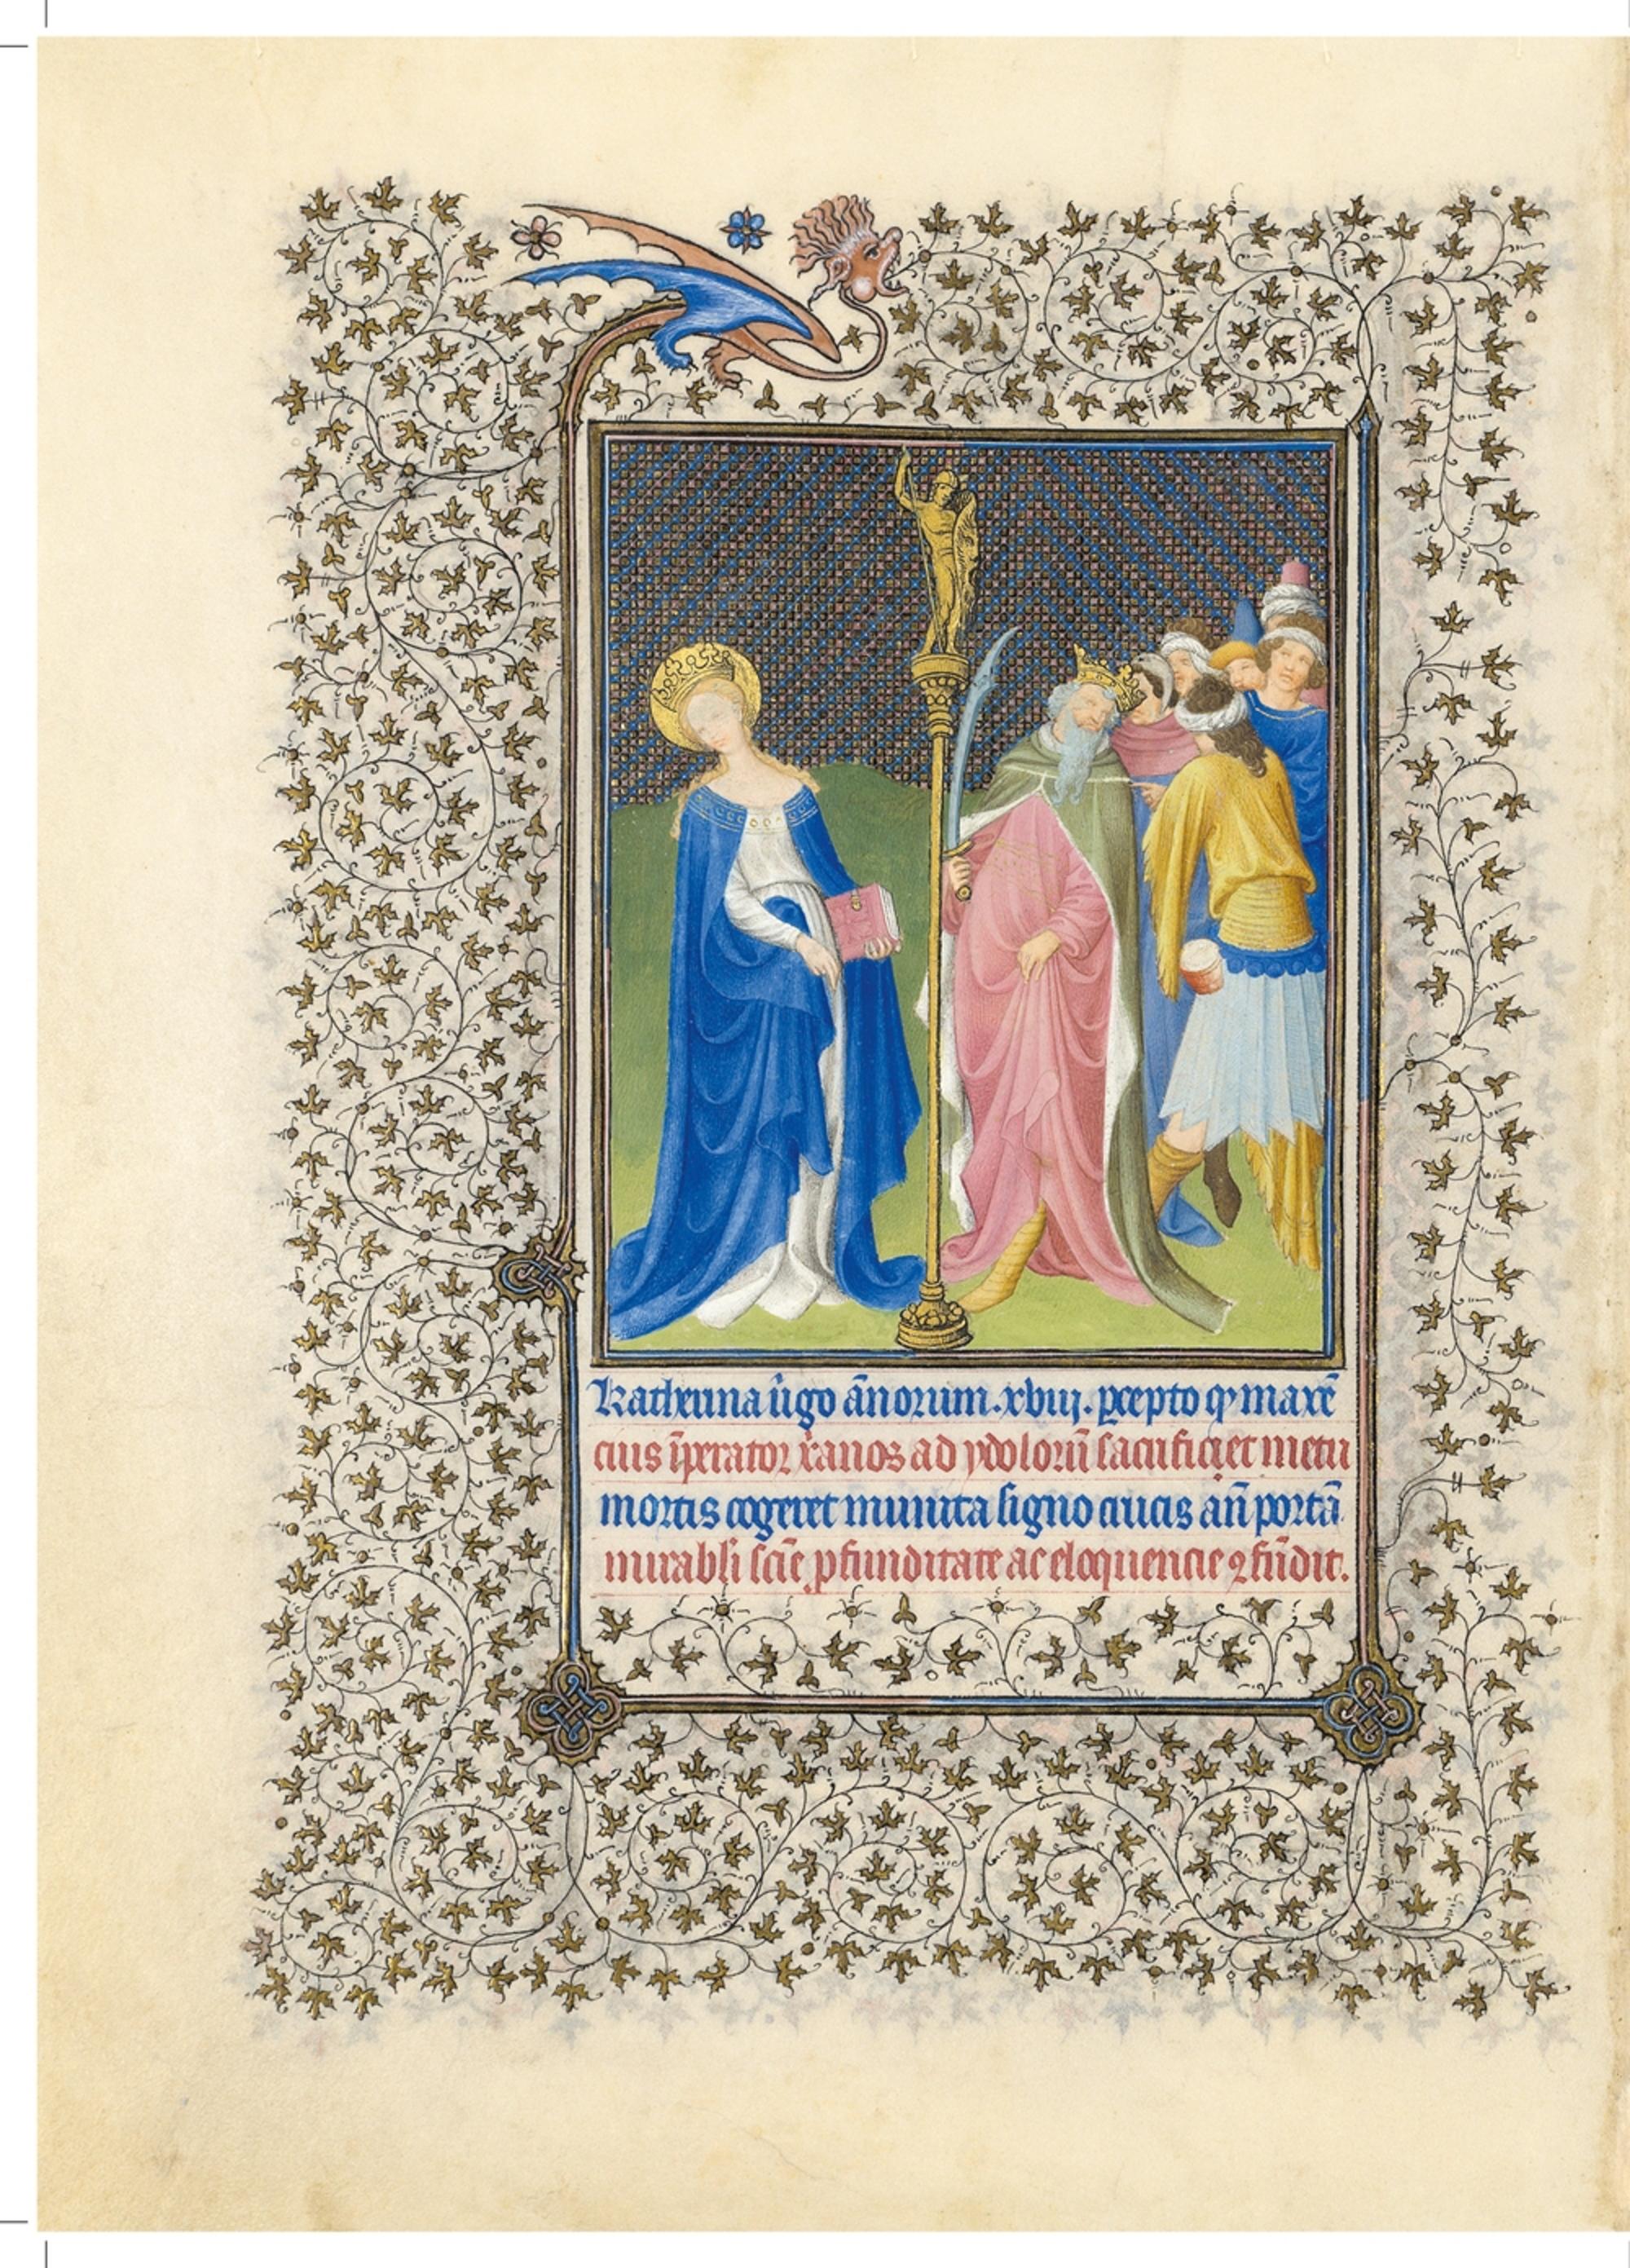 Katherina v̂go ãnorum .xviij. p̱cepto qͥ maxẽ
cius ĩperator xͥanos ad ydolorũ sacrificiet metu
mortis cogeret munita signo crucis añ portã
mirabili sciẽ ꝓfunditate ac eloquencie ꝯfũdit.